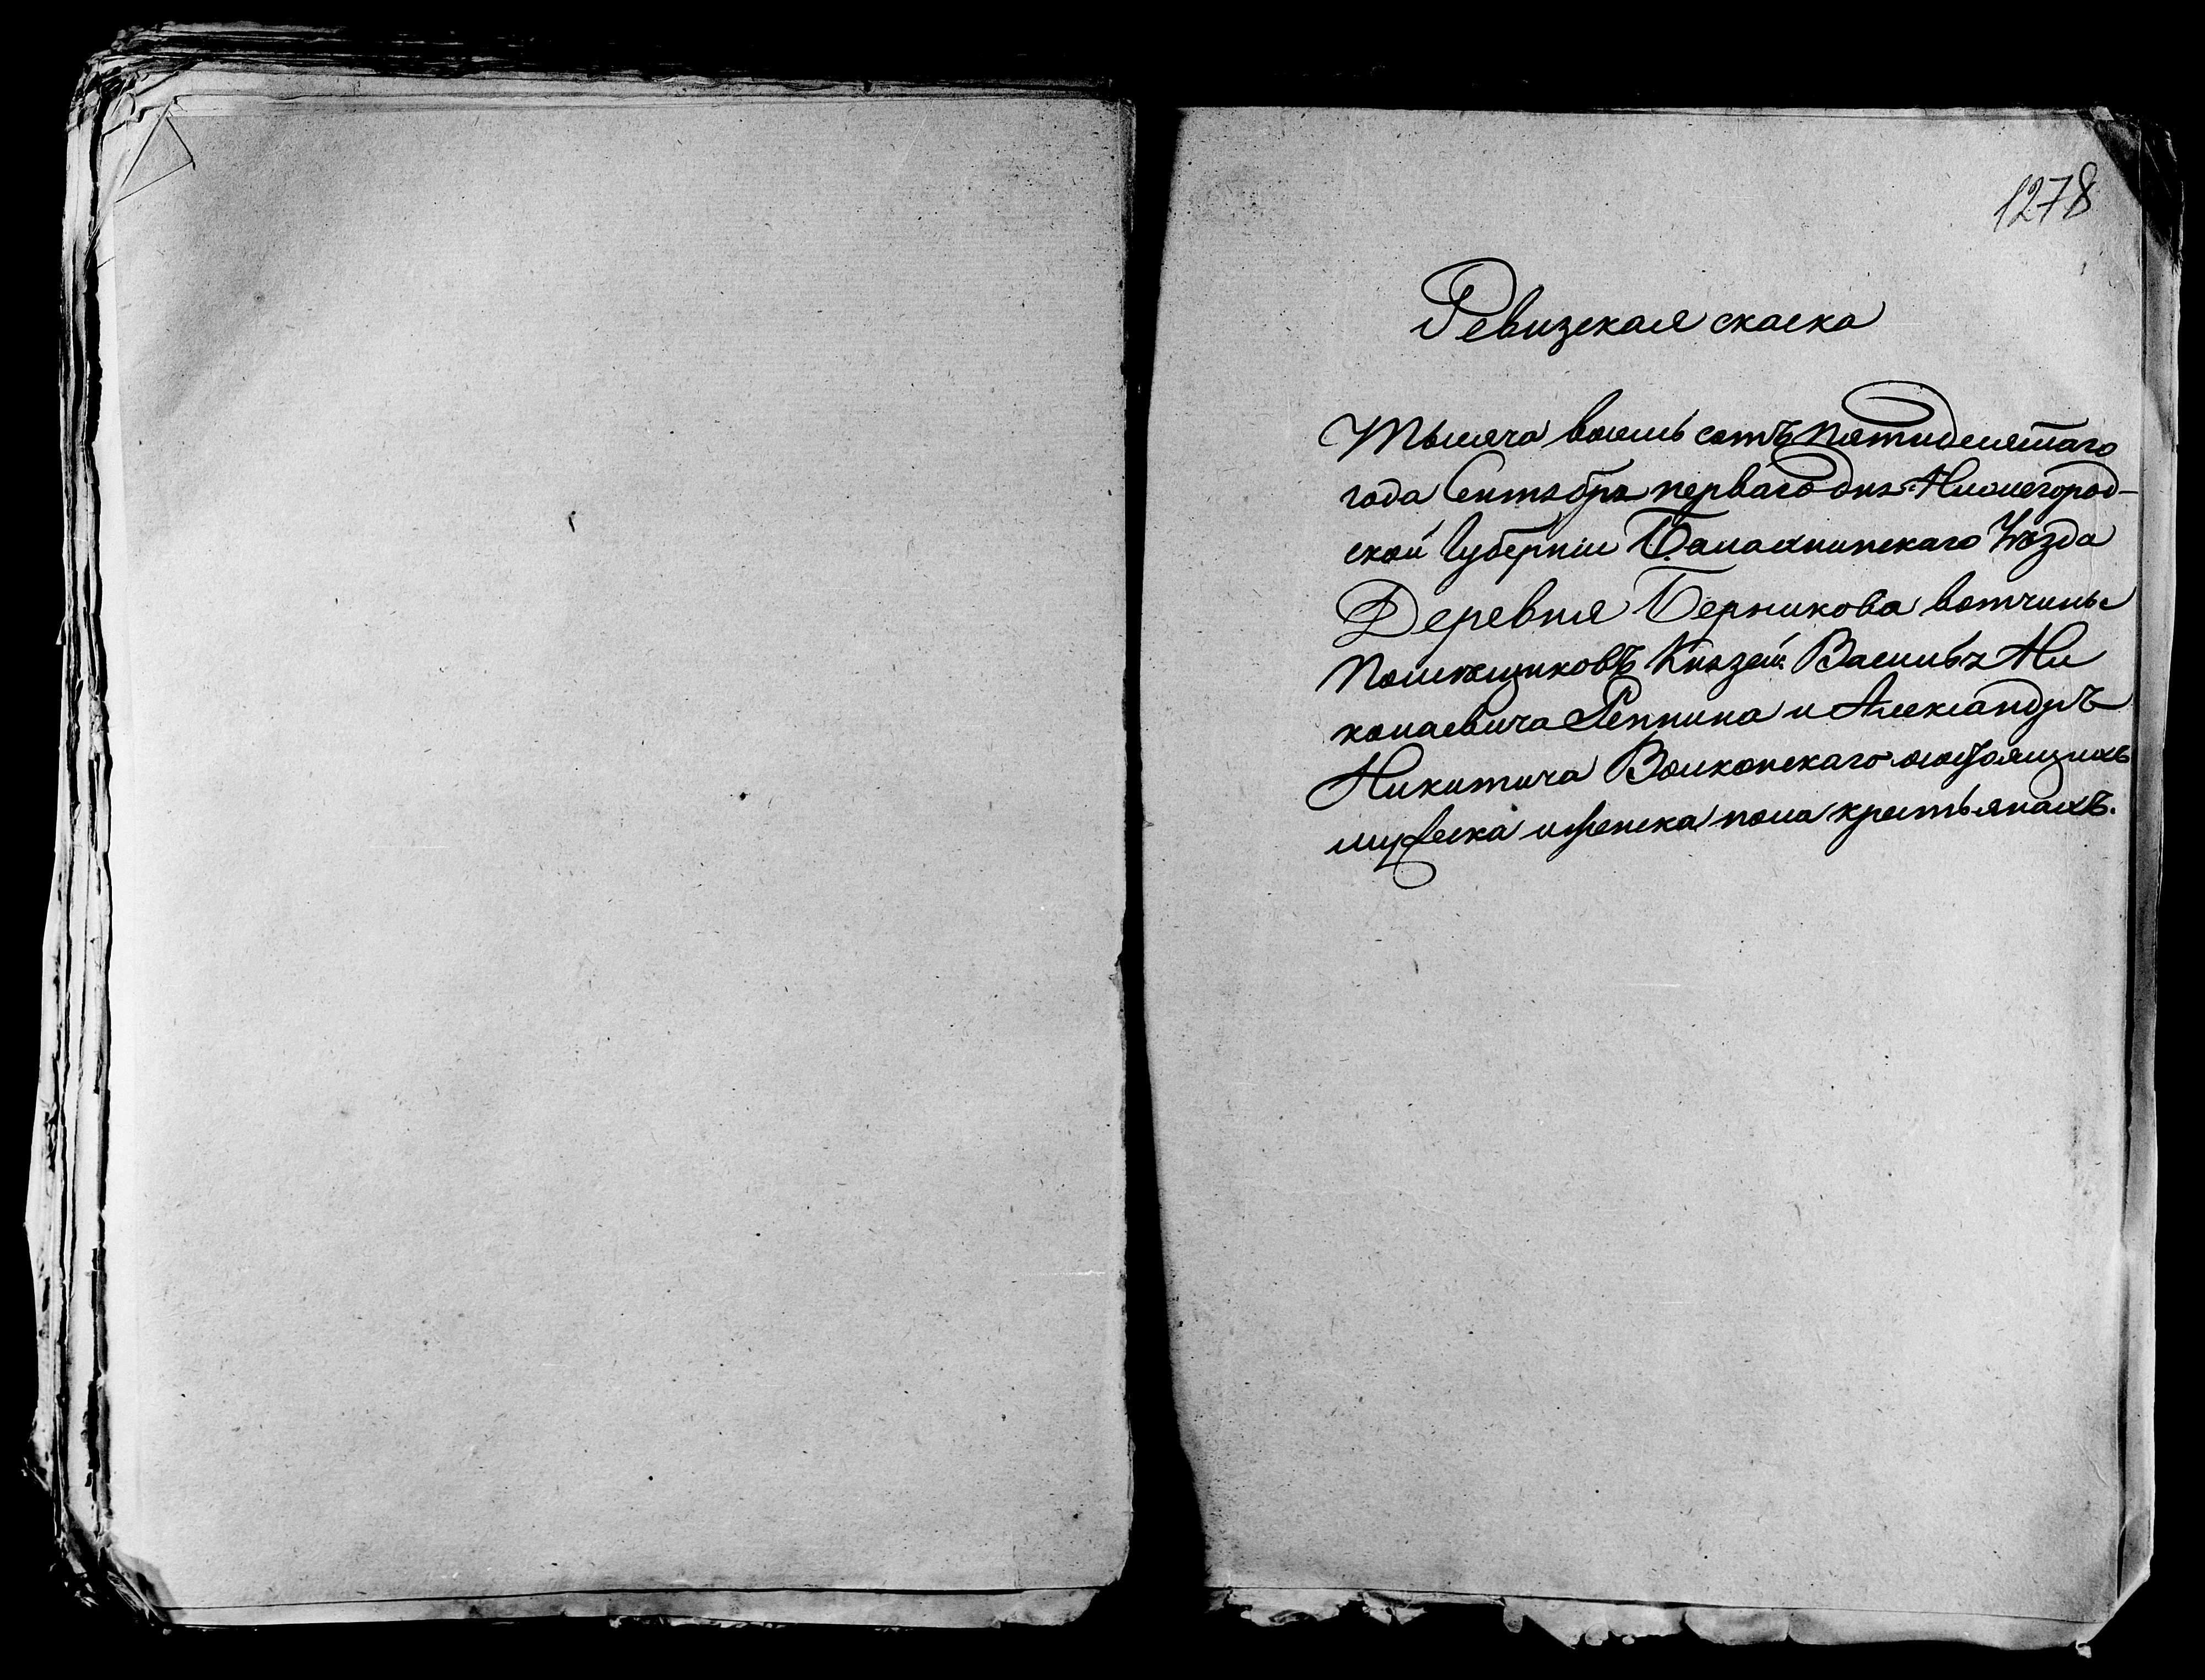 1278
Ревизская скаска
Тысяча восемь сотъ пятидесятаго
года Сентября перваго дня Нижегород-
ской Губерніи Балахнинскаго Уѣзда
Деревня Берникова вотчины
Помѣщиковъ Князей Василья Ни
колаевича Репнина и Александръ
Никитича Волконскаго осостоящихъ
мужеска и женска пола крестьянахъ.